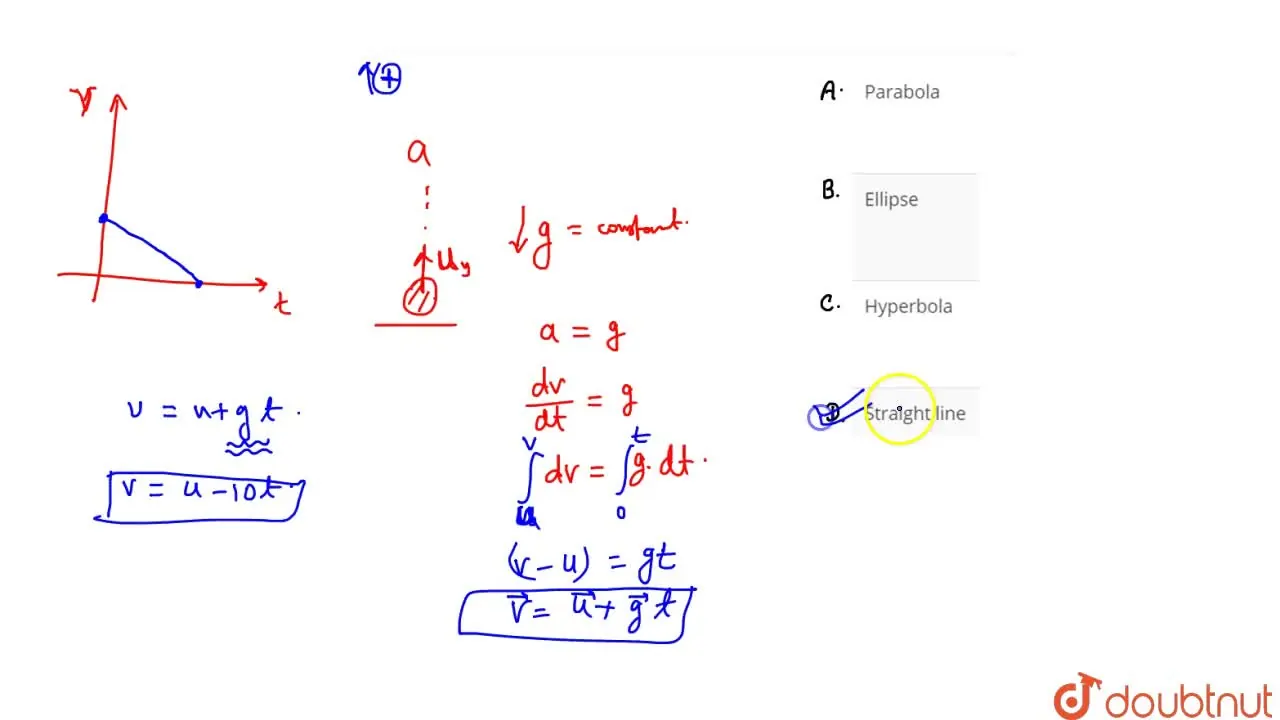 V
t
v = u + g t .
v = u - 10t .
↑(+)
a
u_y
↓ g = constant .
a = g
dv/dt = g
∫_u^v dv = ∫_0^t g. dt .
(v - u) = gt
v⃗ = u⃗ + g⃗ t
A. Parabola
B. Ellipse
C. Hyperbola
D. Straight line
doubtnut